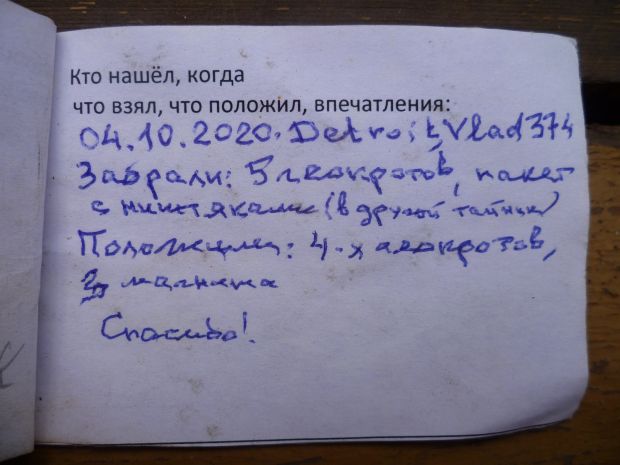 Кто нашёл, когда
что взял, что положил, впечатления:
04.10.2020. Detroit, Vlad374
Забрали: 5 геокротов, пакет
с ништяками (в другой тайник)
Положили: 4-х геокротов,
3 магнита
Спасибо!